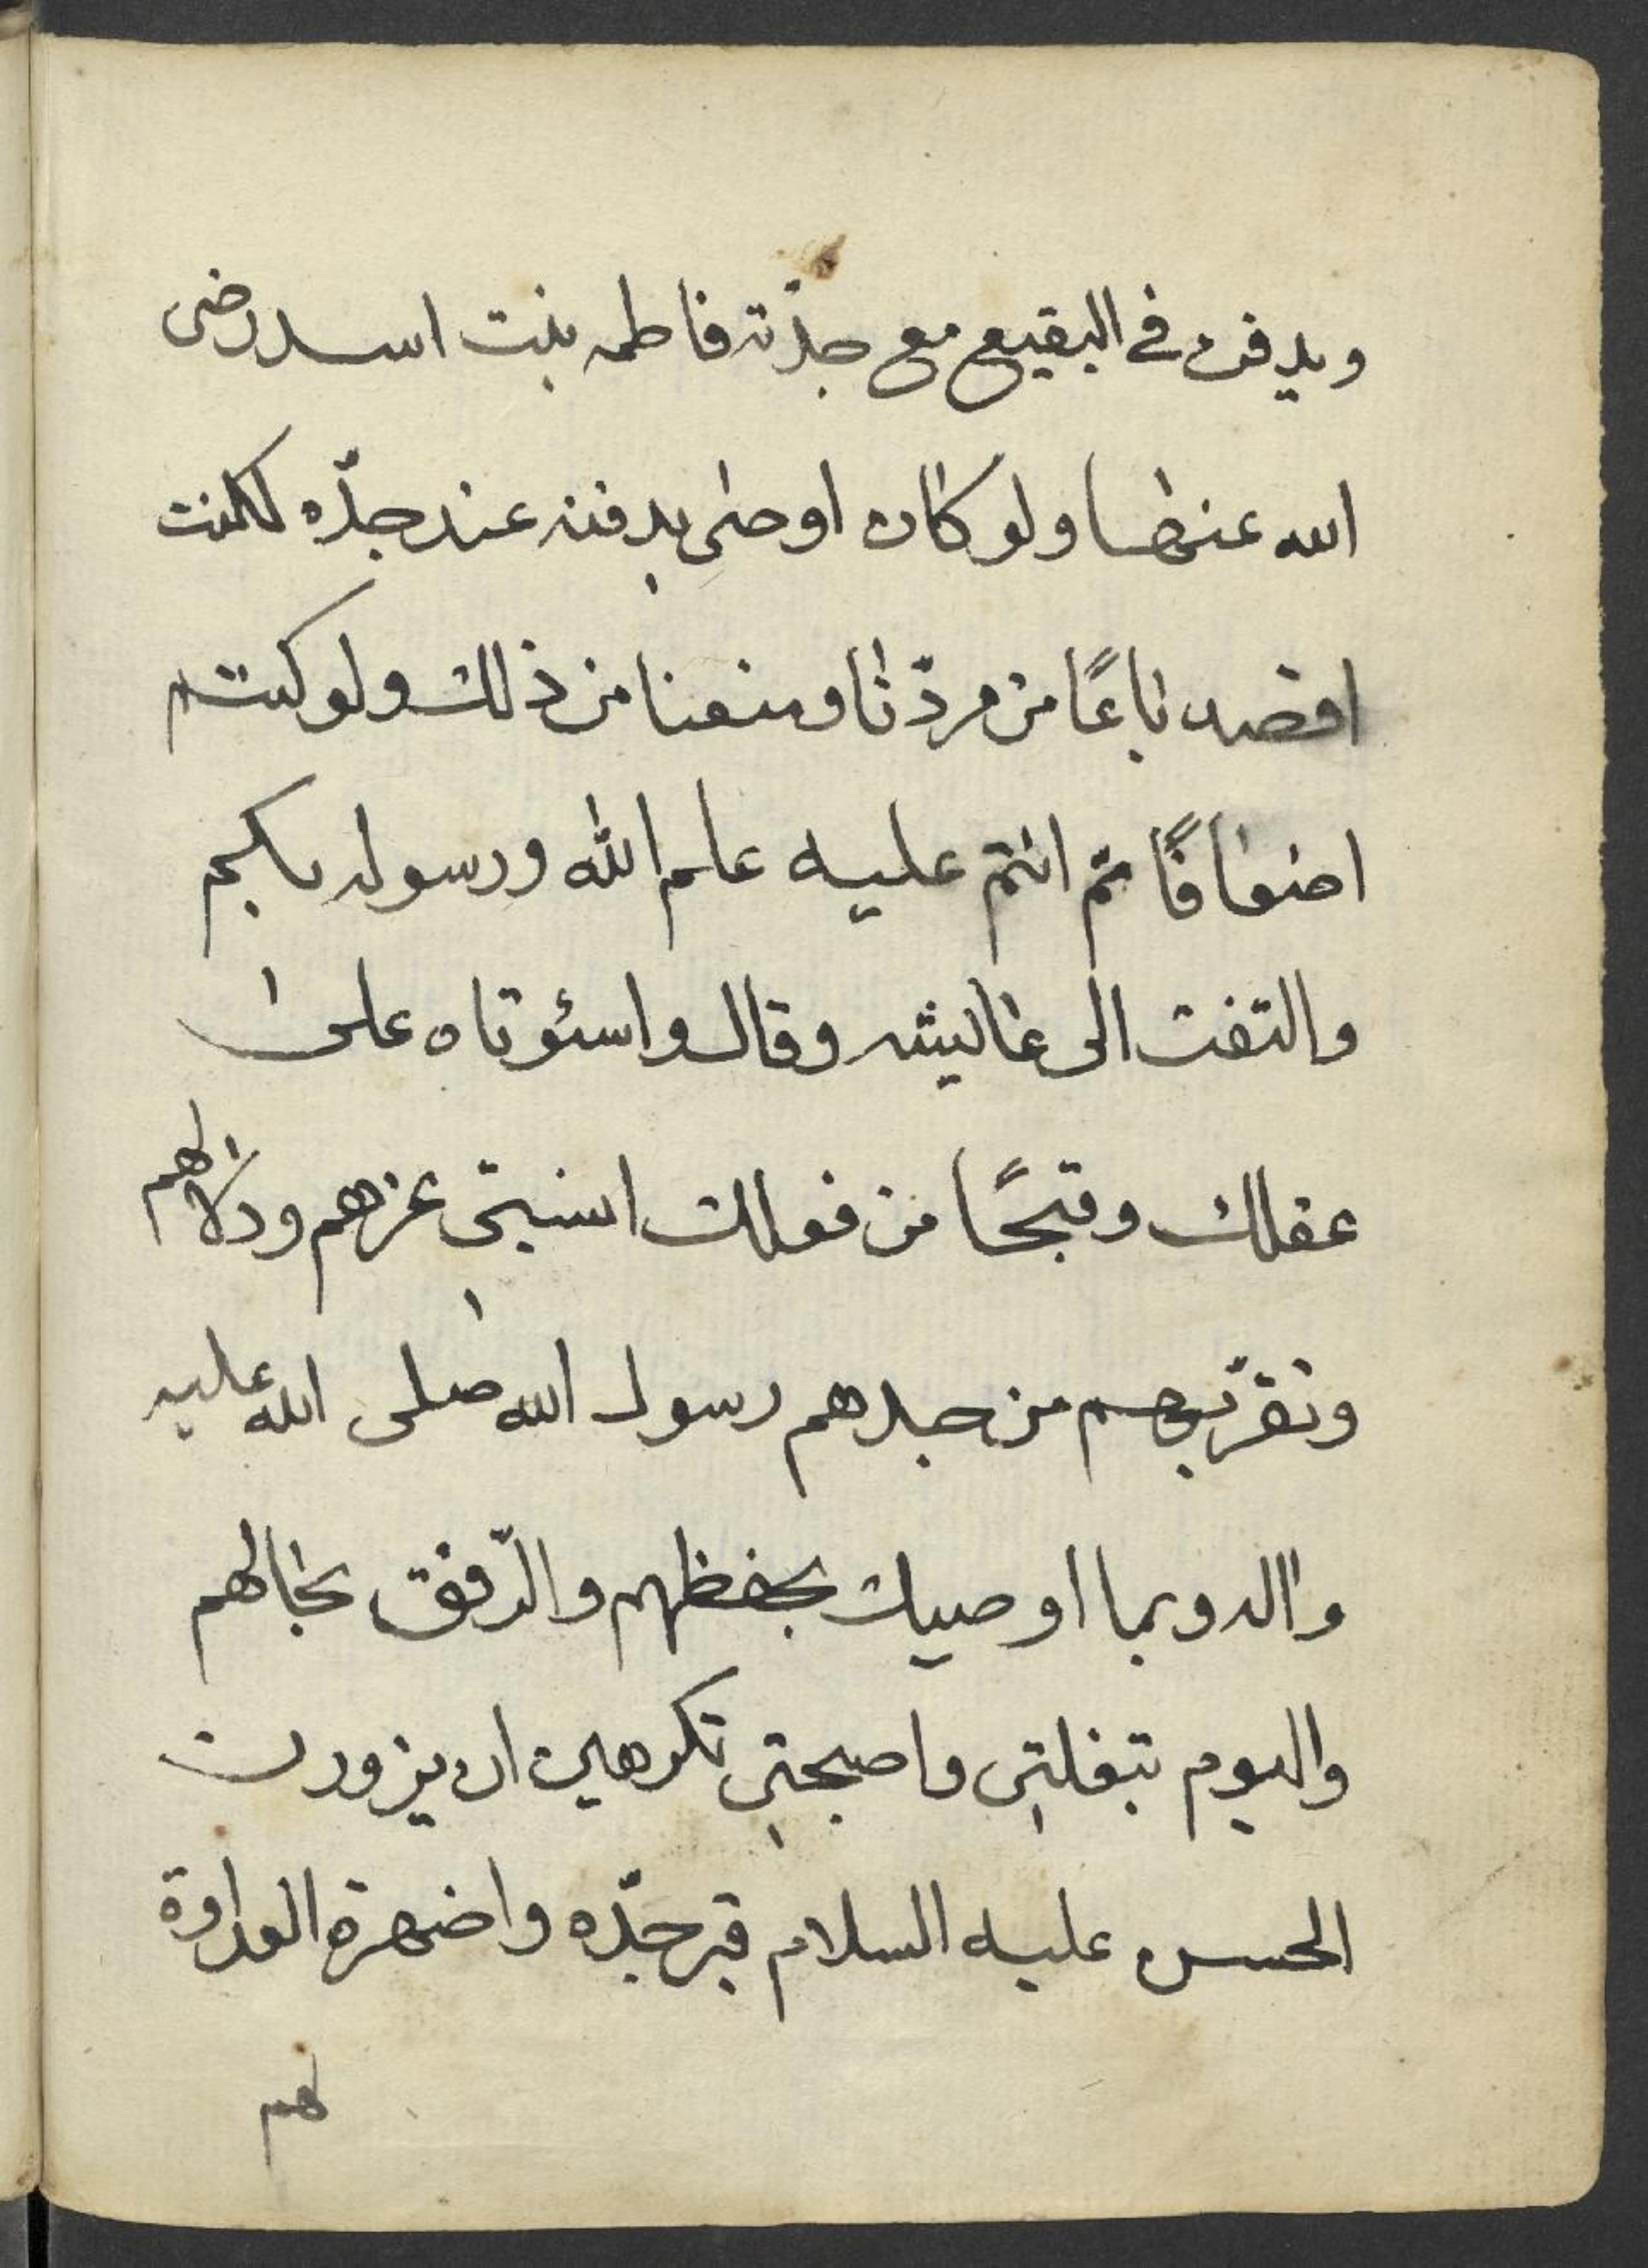 ويدفن في البقيع مع جدّته فاطمه بنت اسد رضى
الله عنها ولو كان اوصٰى بدفنه عند جدّه لكنت
اقصد باعًا من مردّنا ومنعنا من ذلك ولو كنتم
اضعافًا ثمّ انتم عليه علم الله ورسوله بكم
والتفت الى عاليشه وقال واسئوتاه على
عقلك وقبحًا من فعلك انسيتى عزهم ودلالهم
وتقرّبهم من جدهم رسول الله صلى الله عليه
واله وبما اوصيك بحفظهم والرّفق بحالهم
واليوم تبغلتى واصبحتى تكرهين ان يزورن
الحسن عليه السلام قبر جدّه واضهرة العداوة
لهم